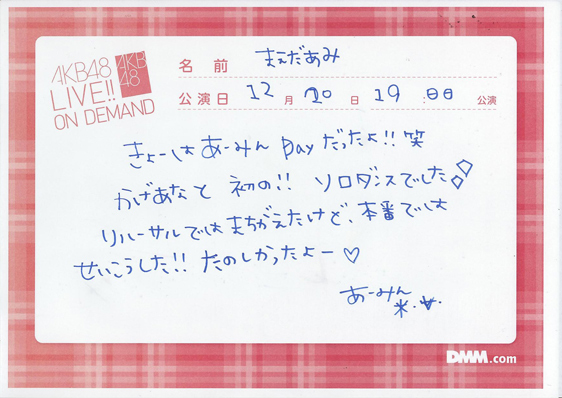 AKB48
LIVE!!
ON DEMAND
AKB
48
名前 まえだあみ
公演日 12月20日 19:00 公演
きょーはあーみんDayだったよ!!笑
かげあなと 初の!! ソロダンスでした
リハーサルではまちがえたけど、本番では
せいこうした!! たのしかったよー♡
あーみん
DMM.com